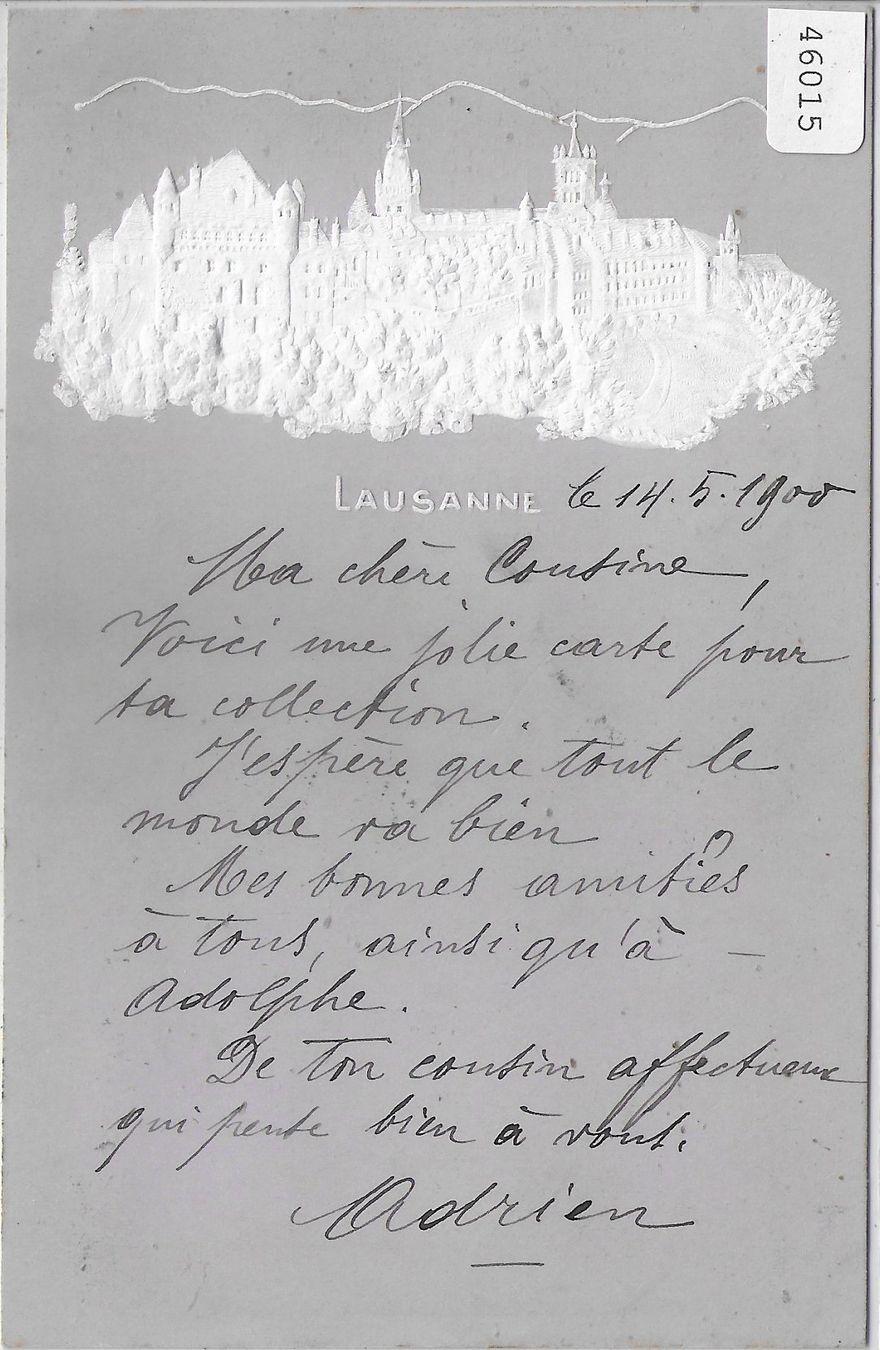 46015
LAUSANNE le 14.5.1900
Ma chère Cousine,
Voici une jolie carte pour
ta collection.
J'espère que tout le
monde va bien
Mes bonnes amitiés
à tous, ainsi qu'à –
Adolphe.
De ton cousin affectueux
qui pense bien à vous.
Adrien